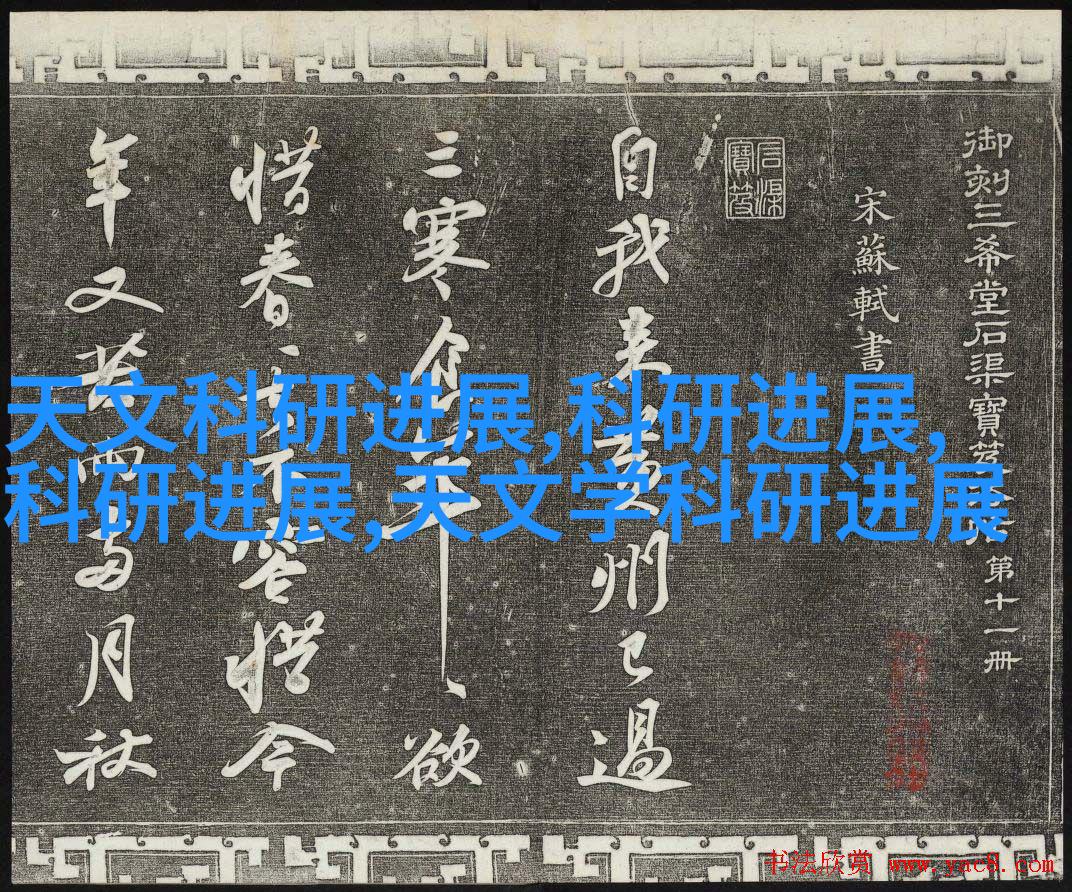 御刻三希堂石渠寶笈法帖第十一册
宋蘇軾書
石渠寶笈
自我来黃州已過
三寒食年年欲
惜春春去不容惜今
年又苦雨兩月秋
天文科研进展,科研进展,
科研进展,天文学科研进展
书法欣赏 www.yac8.com